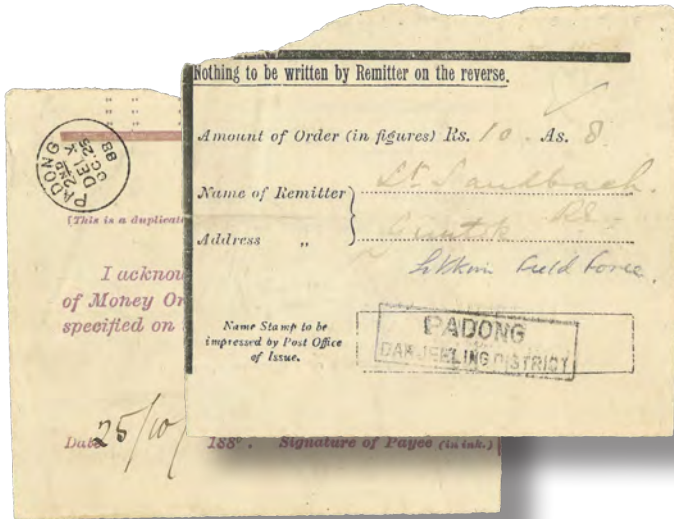 Nothing to be written by Remitter on the reverse.
Amount of Order (in figures) Rs. 10 . As. 8
Name of Remitter } Lt. Saulbach. RE
Address „ Gnatok
Sikkim Field Force.
Name Stamp to be
impressed by Post Office
of Issue.
PADONG
DARJEELING DISTRICT
PADONG
2ND
DEL K
OC.25
88
(This is a duplicate
I acknow
of Money Or
specified on
Date 25/10/ 188 . Signature of Payee (in ink.)